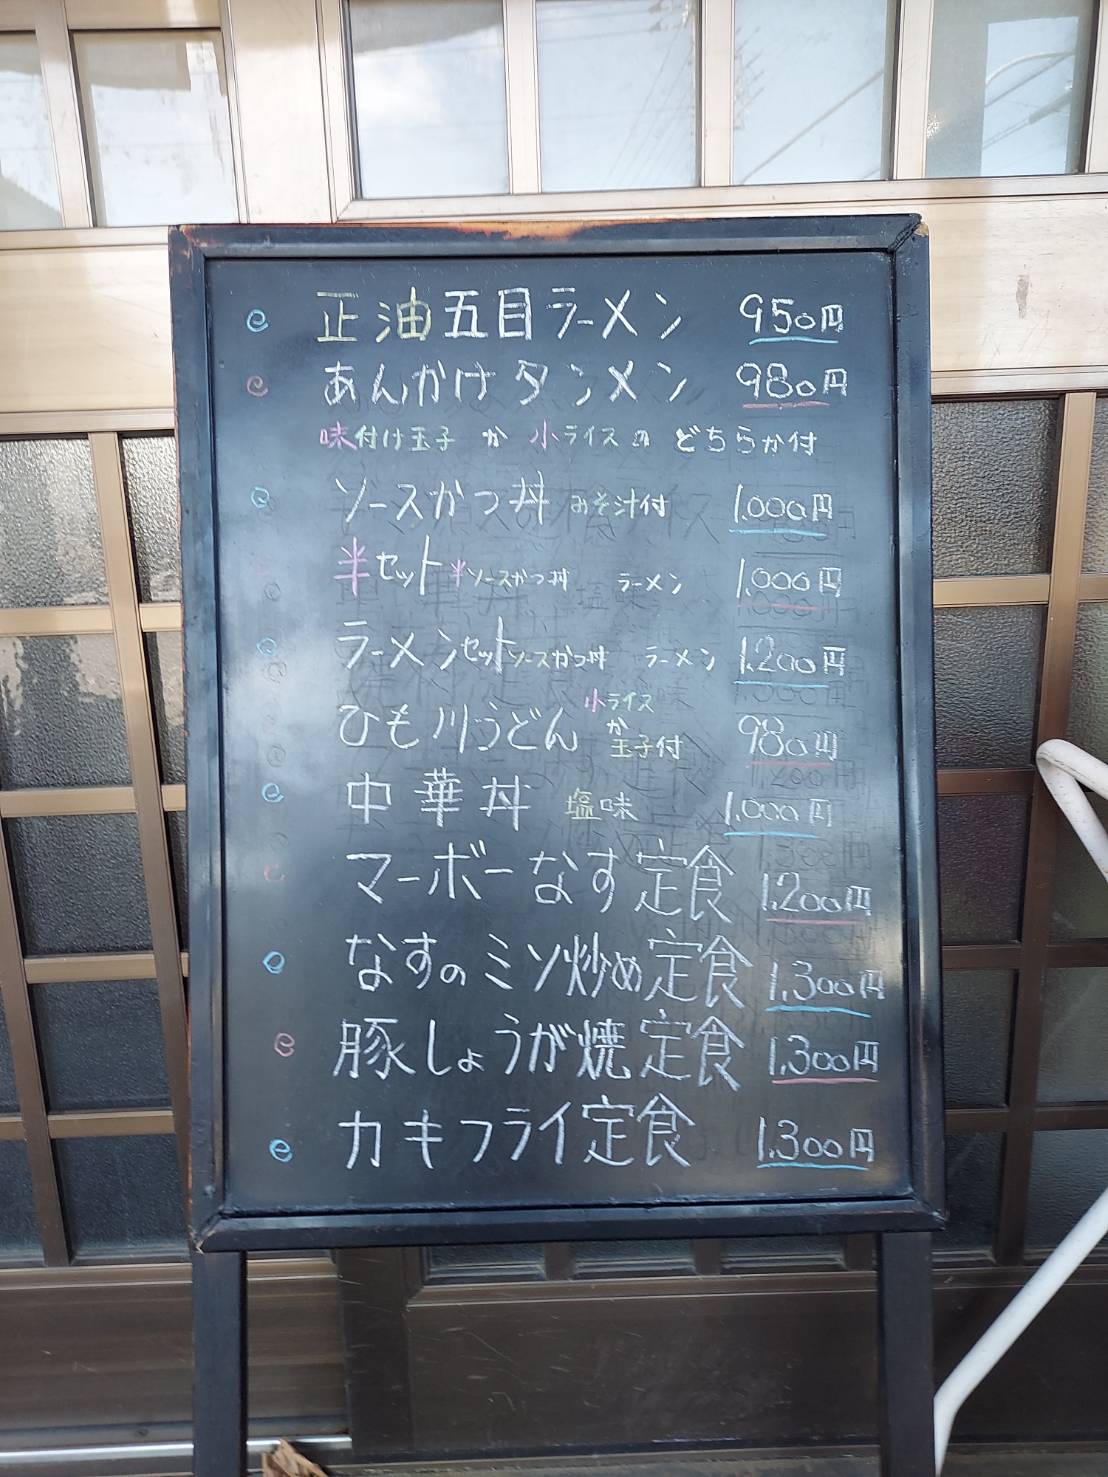 正油五目ラーメン 950円
あんかけタンメン 980円
味付け玉子 か 小ライスの どちらか付
ソースかつ丼 みそ汁付 1,000円
半セット 半ソースかつ丼 ラーメン 1,000円
ラーメンセット ソースかつ丼 ラーメン 1,200円
小ライス
ひも川うどん か 980円
玉子付
中華丼 塩味 1,000円
マーボーなす定食 1,200円
なすのミソ炒め定食 1,300円
豚しょうが焼定食 1,300円
カキフライ定食 1,300円